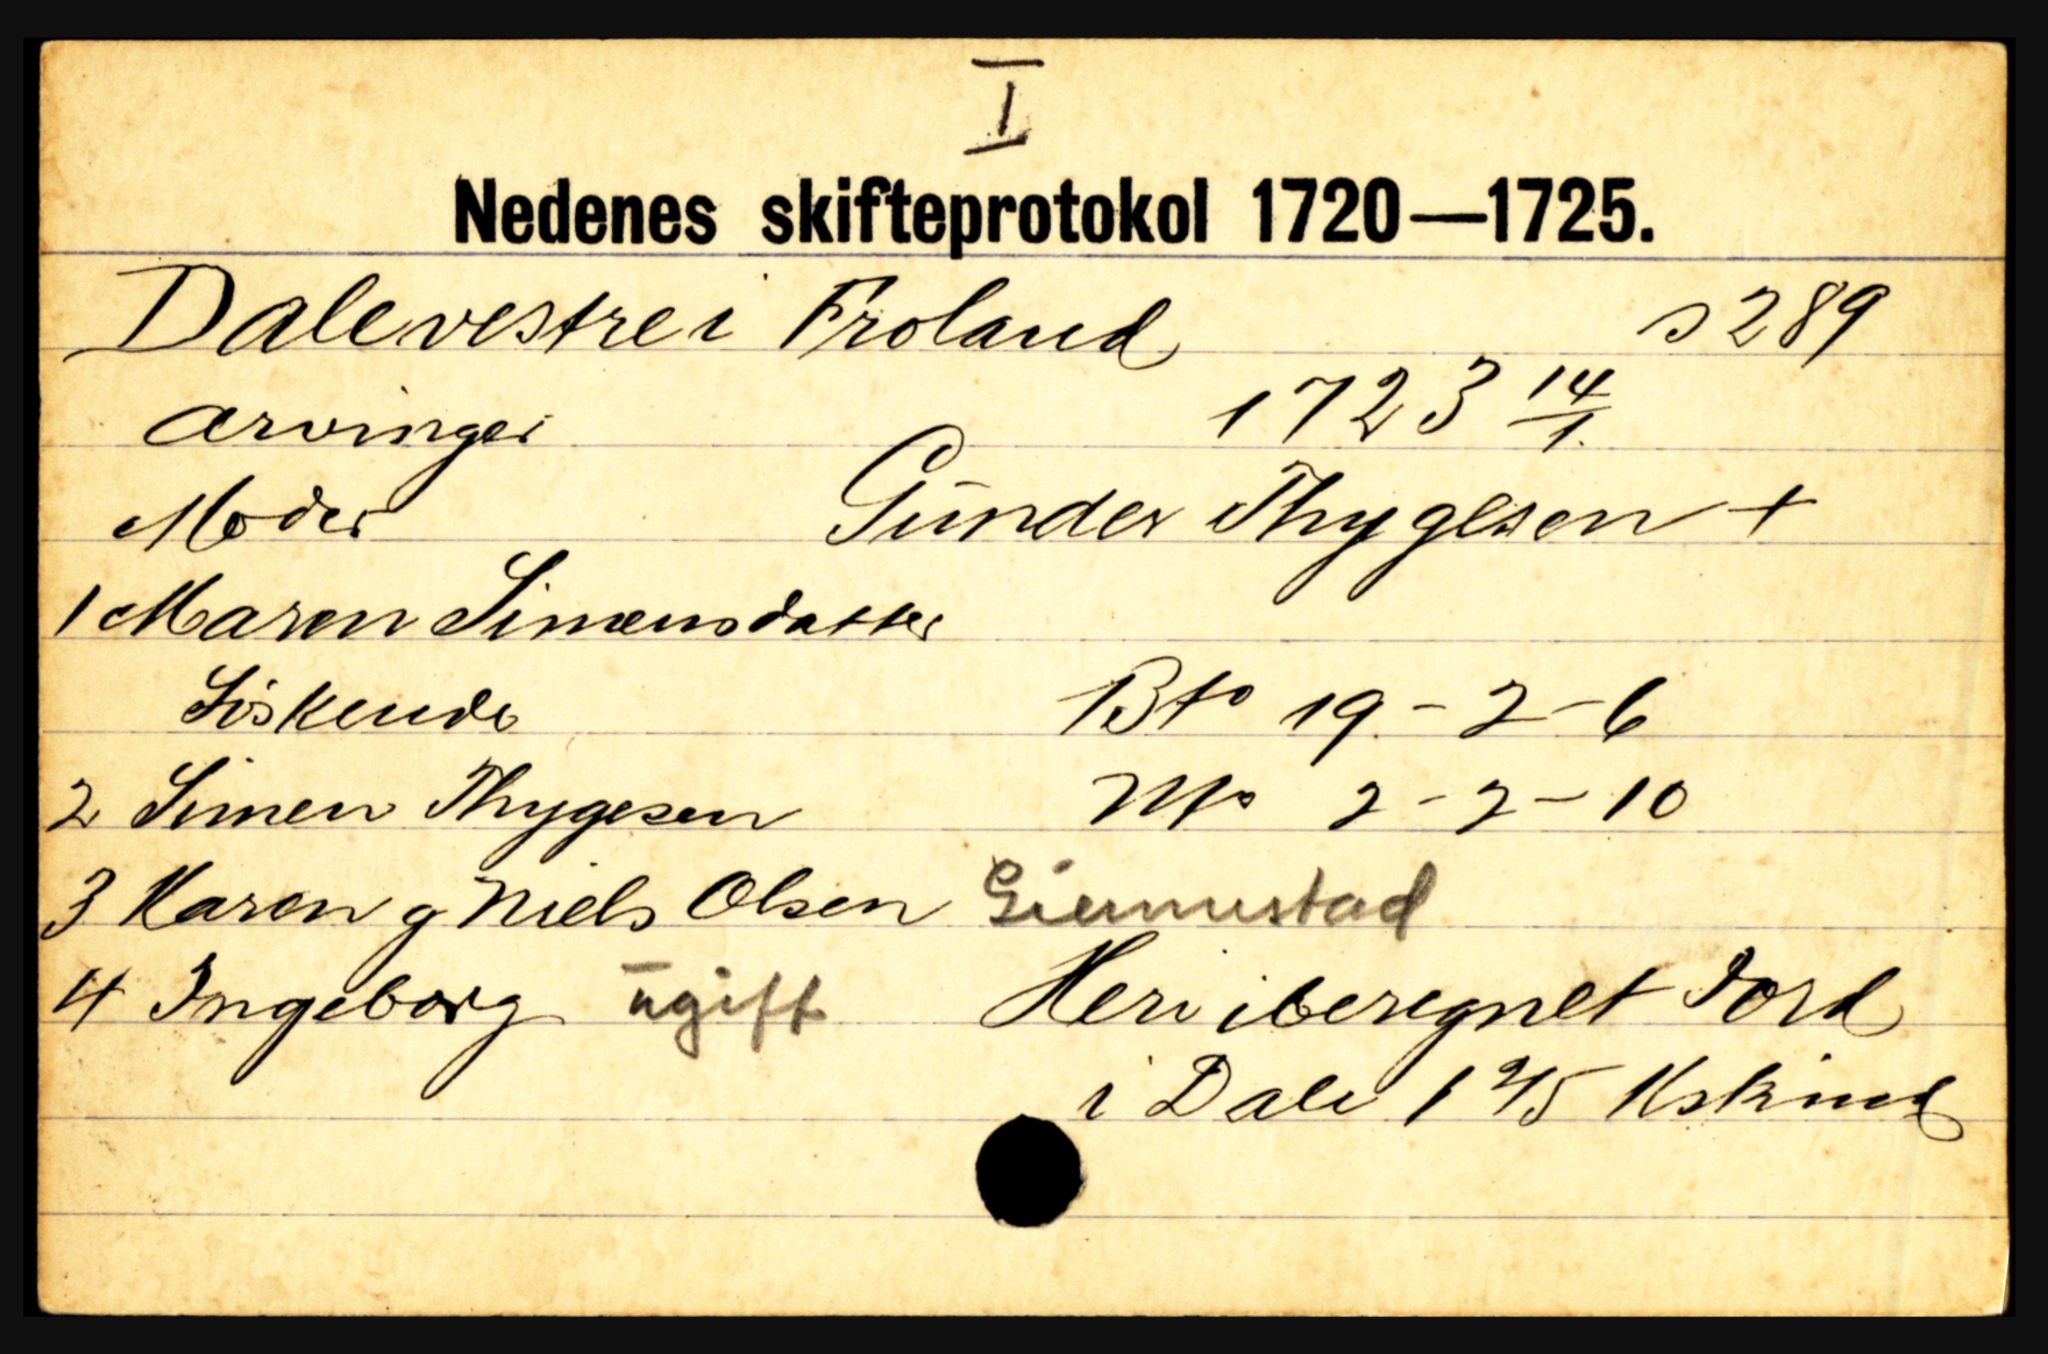 I
Nedenes skifteprotokol 1720—1725.
Dale vestre i Froland s 289
Arvinger 1723 14/1
Moder Gunder Thygesen +
1 Maren Simensdatter
Søskende Bto 19 - 2 - 6
2 Simen Thygesen Mo 2 - 2 - 10
3 Karen g Niels Olsen
4 Ingeborg ugift Heri iberegnet Jord
i Dale 1 2/5 Kskind